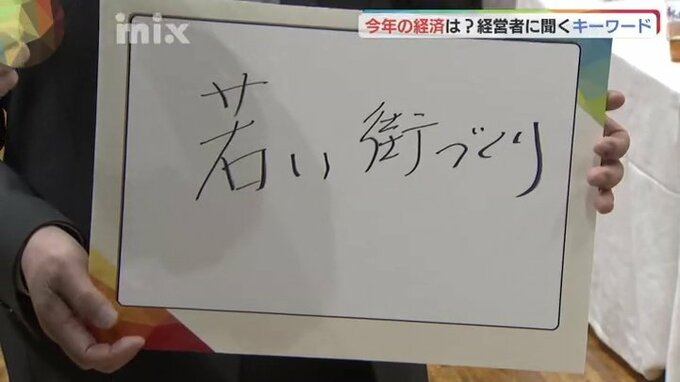 inix
今年の経済は?経営者に聞くキーワード
若い街づくり